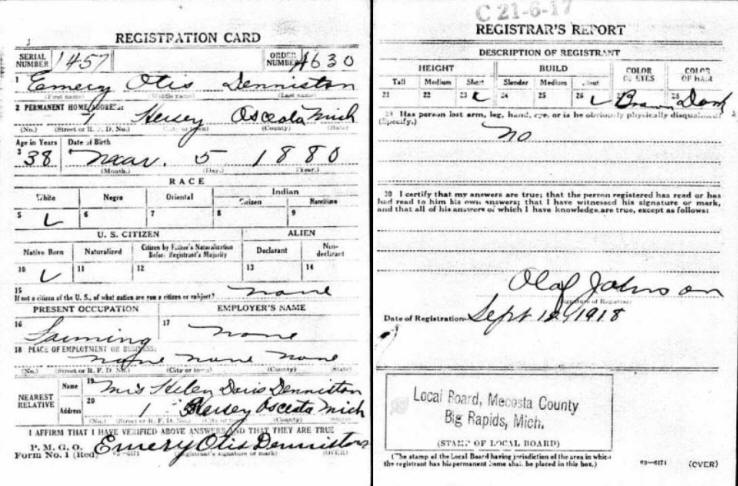 REGISTRATION CARD
SERIAL NUMBER 1457 ORDER NUMBER 4630
1 Emery Otis Denniston
(First name) (Middle name) (Last name)
2 PERMANENT HOME ADDRESS:
1 Hersey Osceola Mich
(No.) (Street or R. F. D. No.) (City or town) (County) (State)
Age in Years Date of Birth
3 38 Mar. 5 1880
(Month.) (Day.) (Year.)
RACE
White Negro Oriental Indian
Citizen Noncitizen
5 6 7 8 9
U. S. CITIZEN ALIEN
Native Born Naturalized Citizen by Father's Naturalization Before Registrant's Majority Declarant Non-declarant
10 11 12 13 14
15 If not a citizen of the U. S., of what nation are you a citizen or subject? none
PRESENT OCCUPATION EMPLOYER'S NAME
16 Farming 17 none
18 PLACE OF EMPLOYMENT OR BUSINESS:
none none none
(No.) (Street or R. F. D. No.) (City or town) (County) (State)
NEAREST RELATIVE Name 19 Mrs Helen Doris Denniston
Address 20 1 Hersey Osceola Mich
(No.) (Street or R. F. D. No.) (City or town) (County) (State)
I AFFIRM THAT I HAVE VERIFIED ABOVE ANSWERS AND THAT THEY ARE TRUE
P. M. G. O.
Form No. 1 (Red) Emery Otis Denniston
(Registrant's signature or mark) (OVER)
C 21-6-17
REGISTRAR'S REPORT
DESCRIPTION OF REGISTRANT
HEIGHT BUILD COLOR OF EYES COLOR OF HAIR
Tall Medium Short Slender Medium Stout
21 22 23 24 25 26 Brown 28 Dark
29 Has person lost arm, leg, hand, eye, or is he obviously physically disqualified?
(Specify.) no
30 I certify that my answers are true; that the person registered has read or has
had read to him his own answers; that I have witnessed his signature or mark,
and that all of his answers of which I have knowledge are true, except as follows:
Olaf Johnson
(Signature of Registrar)
Date of Registration Sept 12, 1918
Local Board, Mecosta County
Big Rapids, Mich.
(STAMP OF LOCAL BOARD)
(The stamp of the Local Board having jurisdiction of the area in which
the registrant has his permanent home shall be placed in this box.)
03-6171 (OVER)